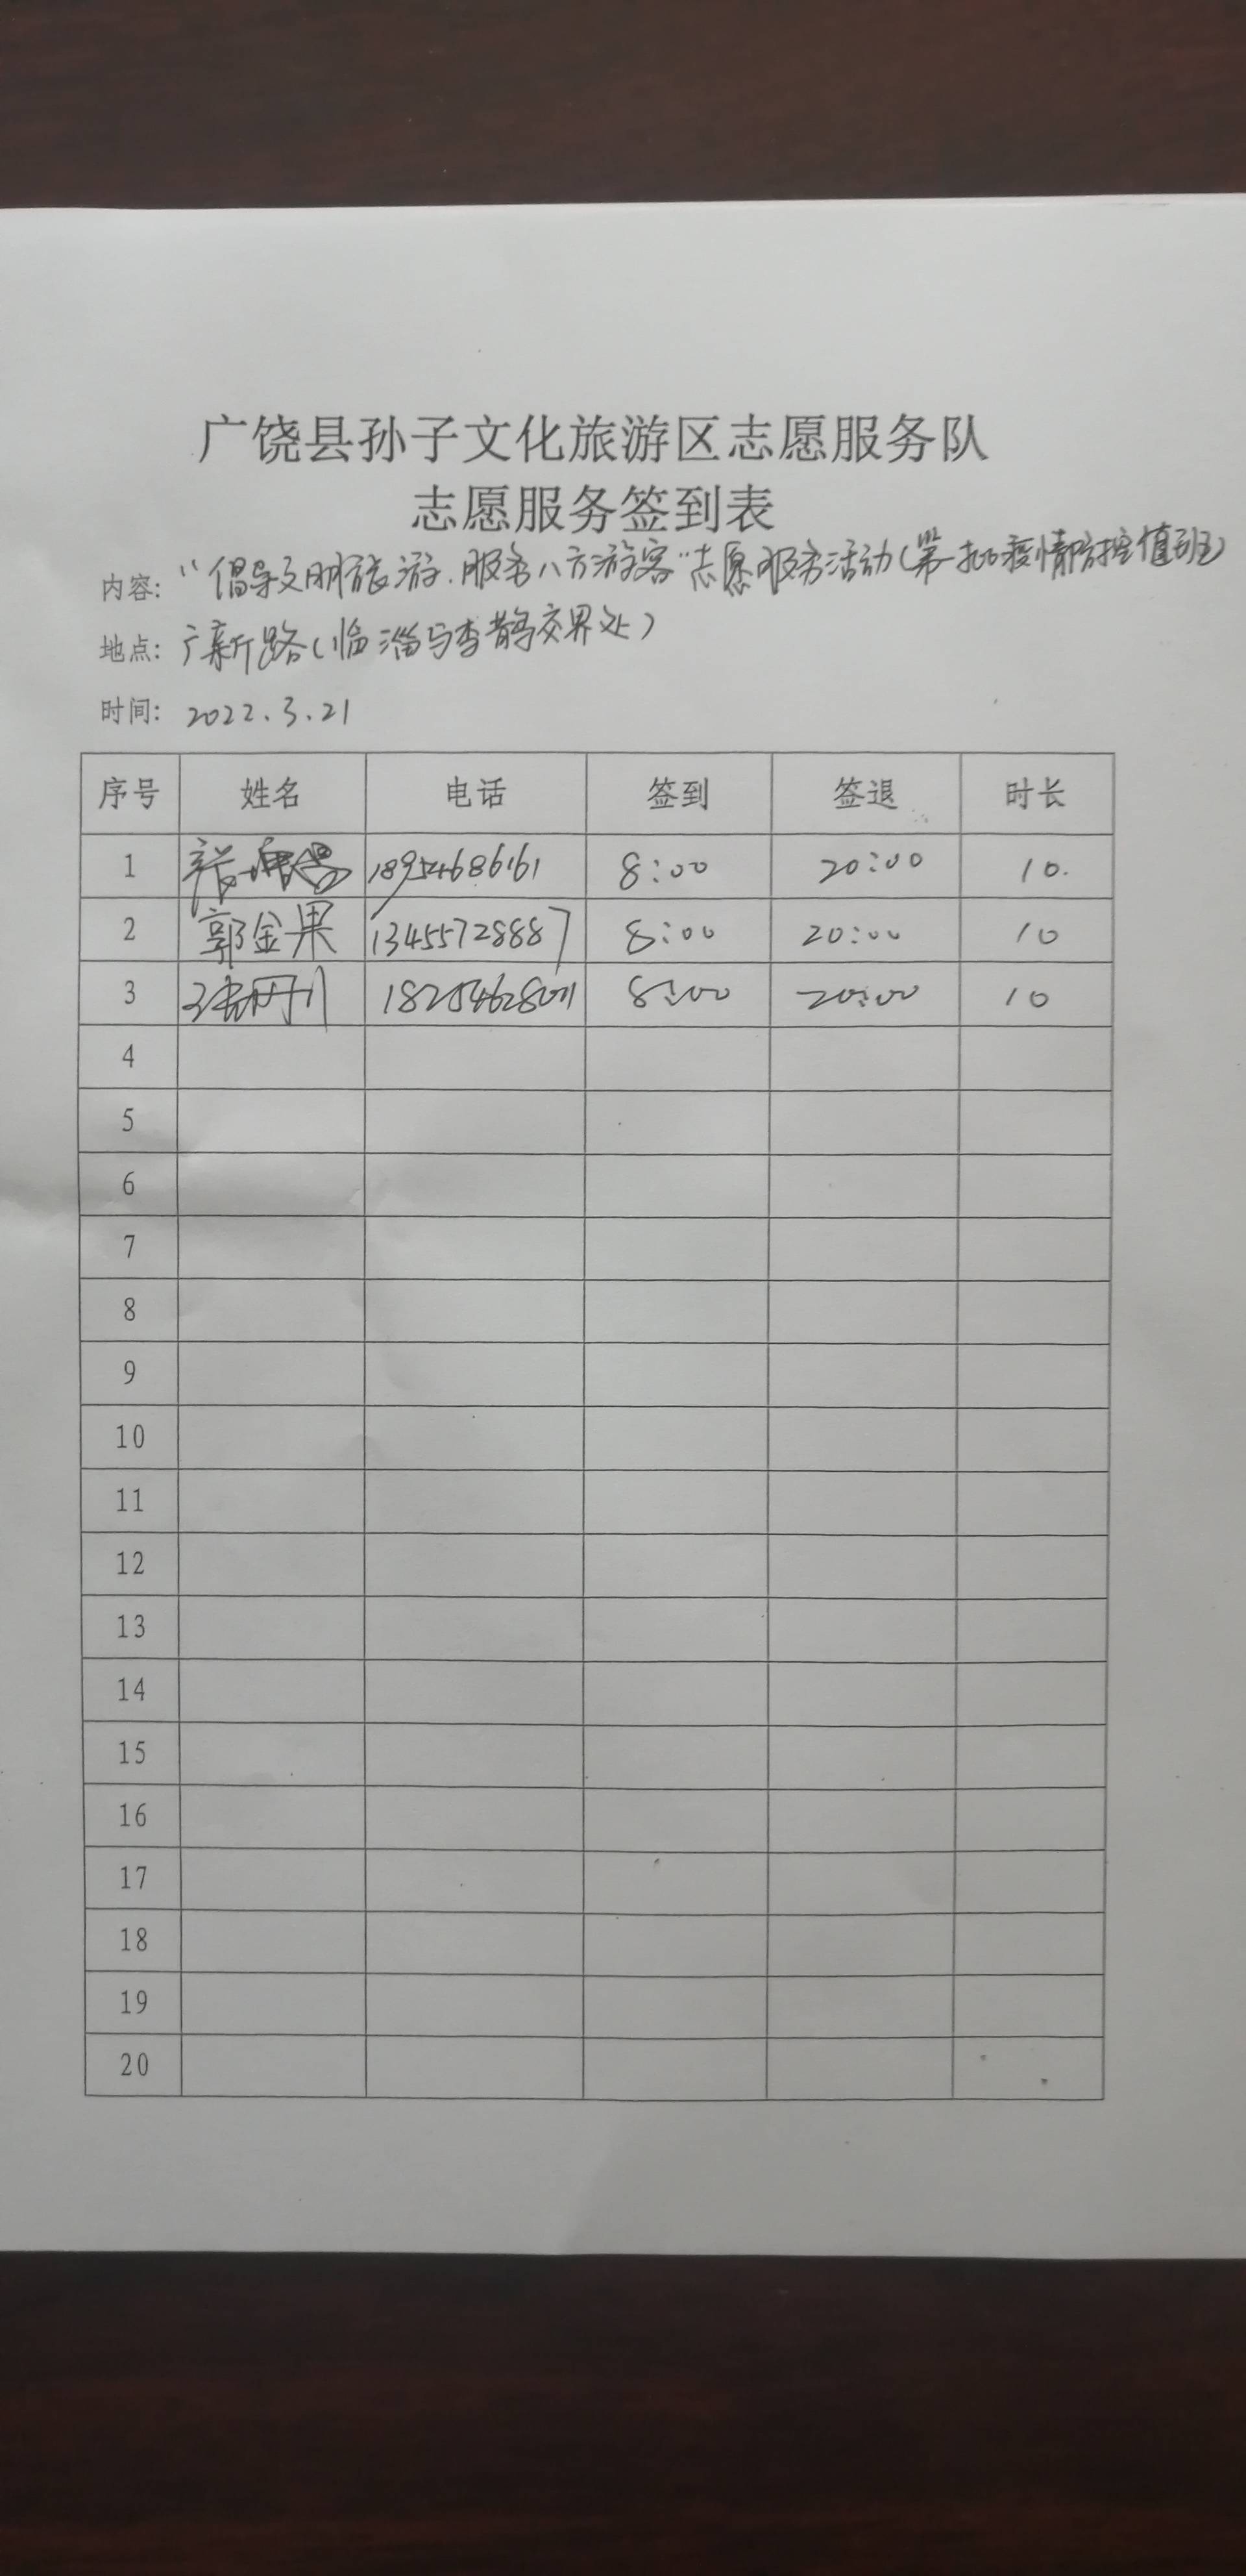 广饶县孙子文化旅游区志愿服务队
志愿服务签到表
内容: “倡导文明旅游.服务八方游客”志愿服务活动(第一批疫情防控值班)
地点: 广新路(临淄与李鹊交界处)
时间: 2022.3.21
序号 姓名 电话 签到 签退 时长
1 18954686161 8:00 20:00 10.
2 郭金果 13455728887 8:00 20:00 10
3 8:00 20:00 10
4
5
6
7
8
9
10
11
12
13
14
15
16
17
18
19
20